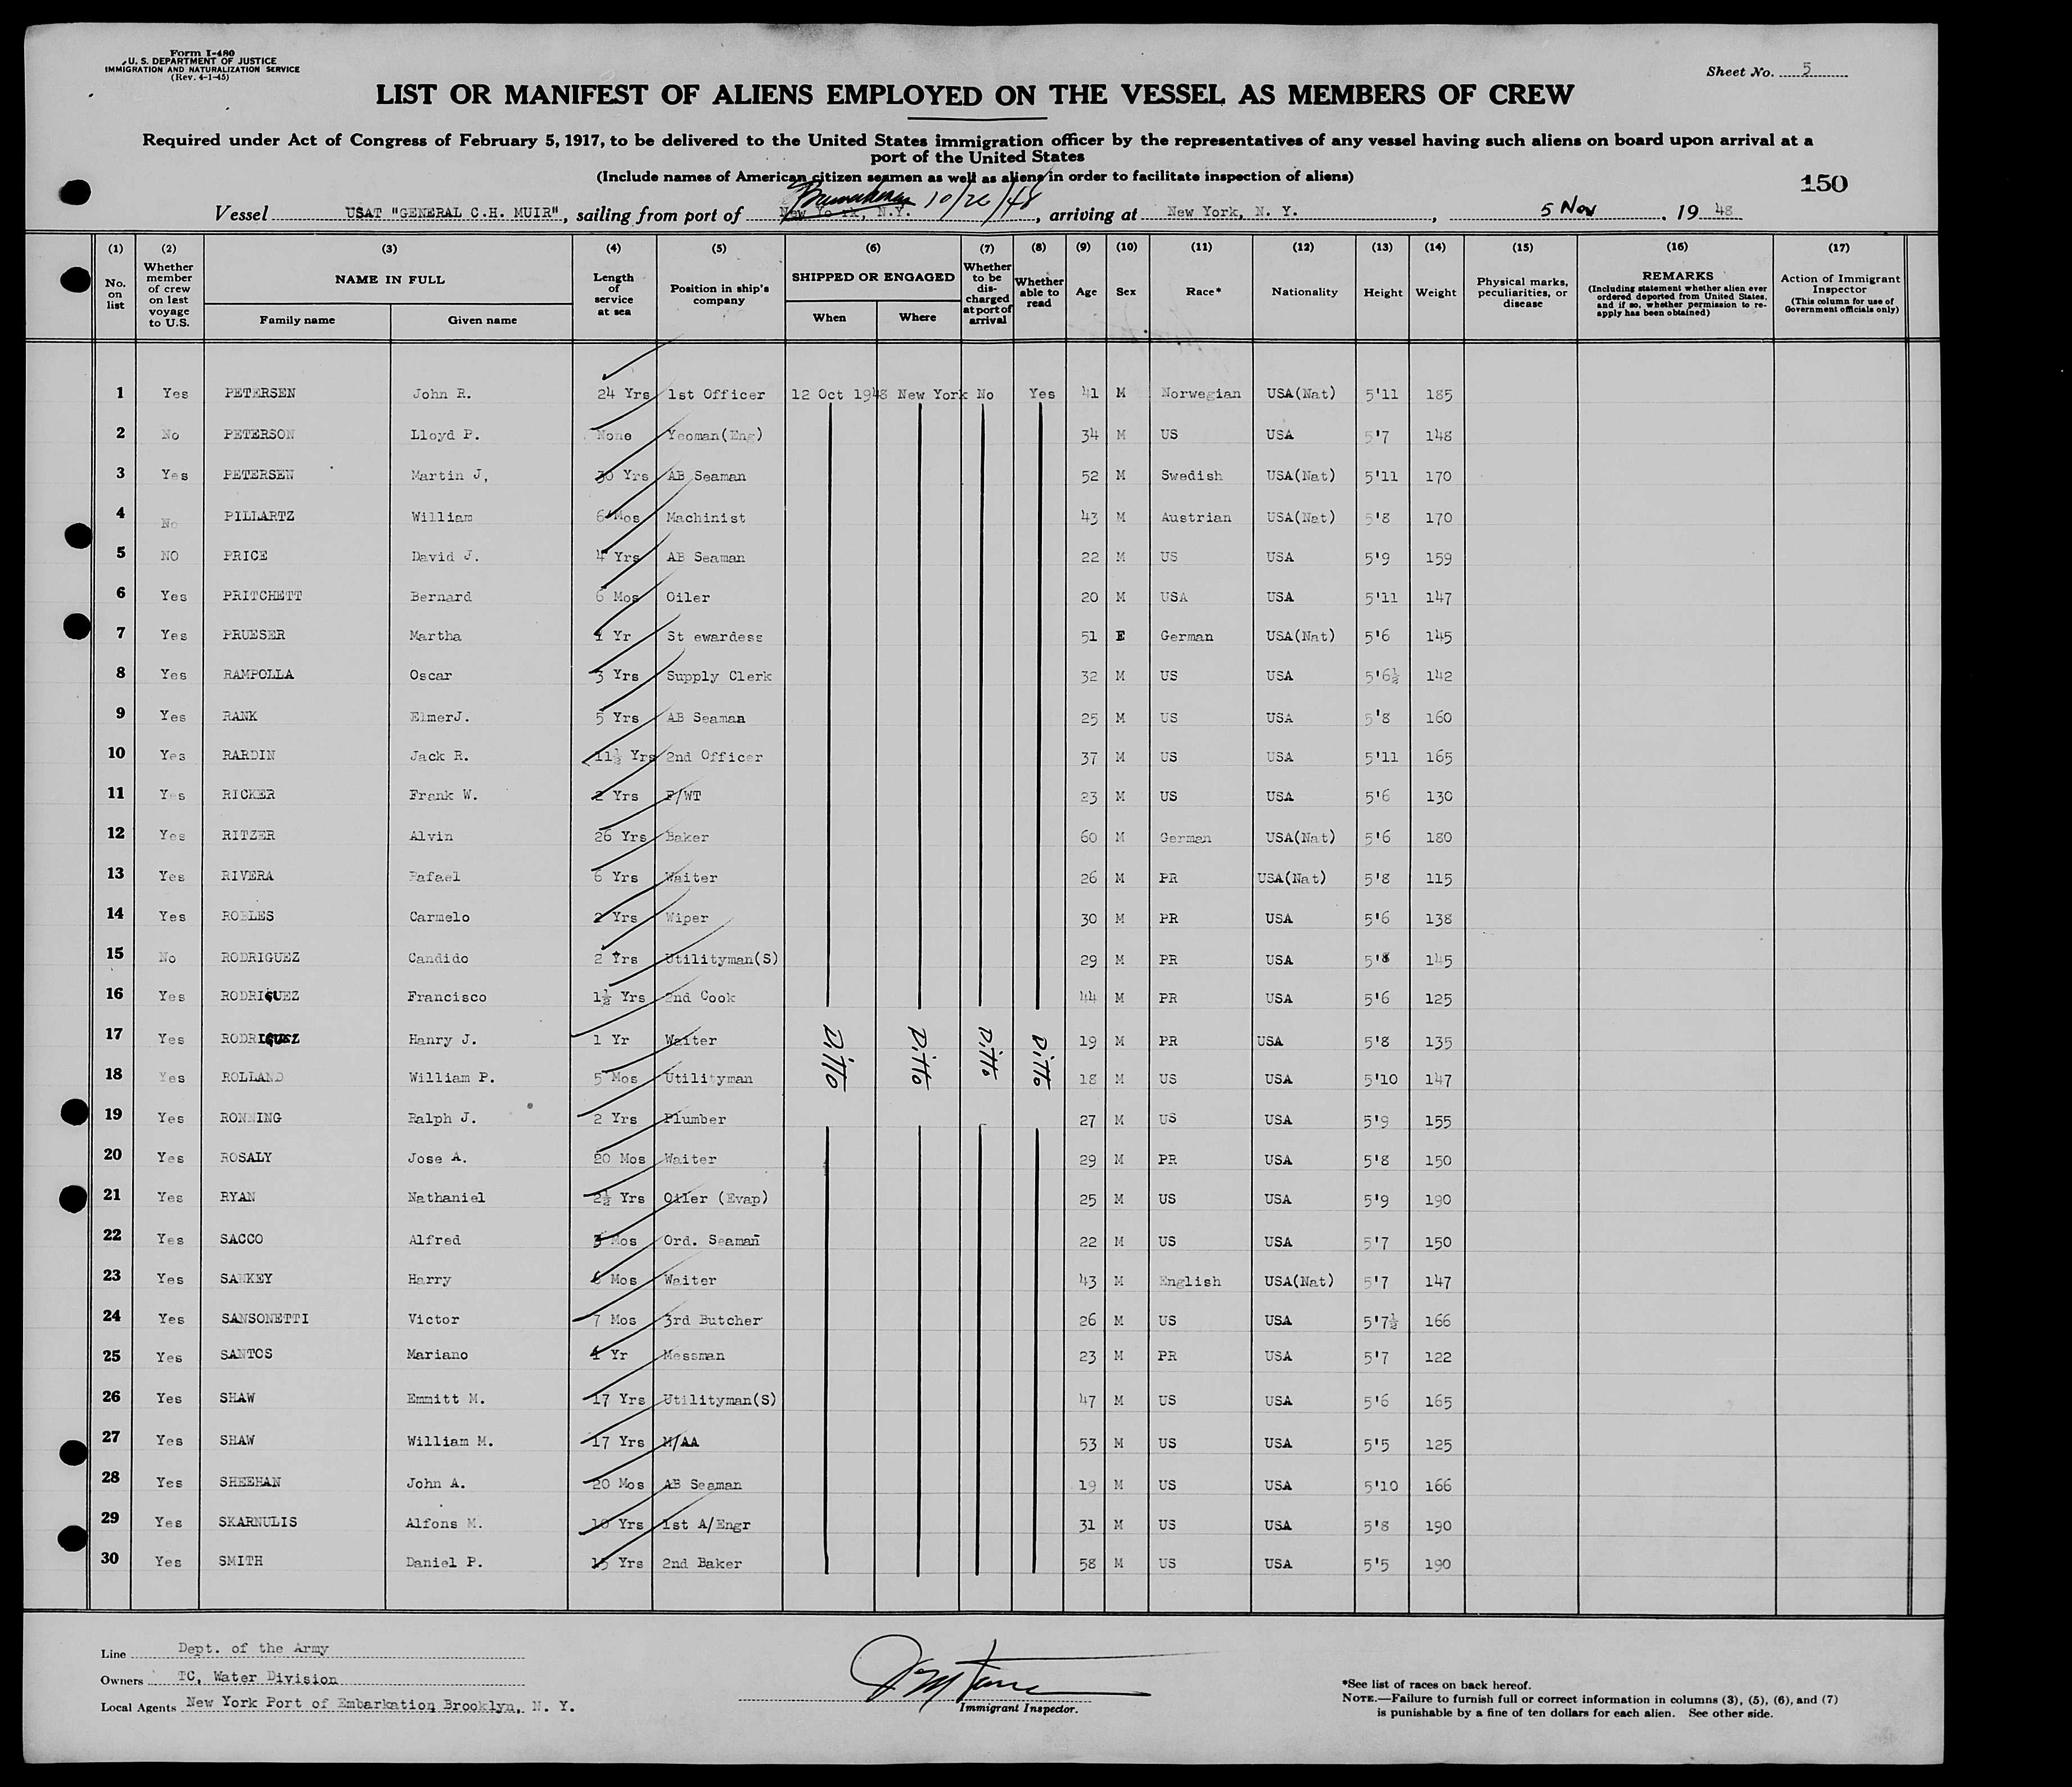 Form I-480
U. S. DEPARTMENT OF JUSTICE
IMMIGRATION AND NATURALIZATION SERVICE
(Rev. 4-1-45)
Sheet No. 5
LIST OR MANIFEST OF ALIENS EMPLOYED ON THE VESSEL AS MEMBERS OF CREW
Required under Act of Congress of February 5, 1917, to be delivered to the United States immigration officer by the representatives of any vessel having such aliens on board upon arrival at a
port of the United States
(Include names of American citizen seamen as well as aliens in order to facilitate inspection of aliens)
150
Vessel USAT "GENERAL C.H. MUIR", sailing from port of New York, N.Y. , arriving at New York, N. Y. , 5 Nov , 19 48
(1) (2) (3) (4) (5) (6) (7) (8) (9) (10) (11) (12) (13) (14) (15) (16) (17)
No. on list Whether member of crew on last voyage to U.S. NAME IN FULL Family name Given name Length of service at sea Position in ship's company SHIPPED OR ENGAGED When Where Whether to be discharged at port of arrival Whether able to read Age Sex Race* Nationality Height Weight Physical marks, peculiarities, or disease REMARKS (Including statement whether alien ever ordered deported from United States, and if so, whether permission to re-apply has been obtained) Action of Immigrant Inspector (This column for use of Government officials only)
1 Yes PETERSEN John R. 24 Yrs 1st Officer 12 Oct 1948 New York No Yes 41 M Norwegian USA(Nat) 5'11 185
2 No PETERSON Lloyd P. None Yeoman(Eng) 34 M US USA 5'7 148
3 Yes PETERSEN Martin J, 30 Yrs AB Seaman 52 M Swedish USA(Nat) 5'11 170
4 No PILLARTZ William 6 Mos Machinist 43 M Austrian USA(Nat) 5'8 170
5 NO PRICE David J. 4 Yrs AB Seaman 22 M US USA 5'9 159
6 Yes PRITCHETT Bernard 6 Mos Oiler 20 M USA USA 5'11 147
7 Yes PRUESER Martha 1 Yr St ewardess 51 F German USA(Nat) 5'6 145
8 Yes RAMPOLLA Oscar 3 Yrs Supply Clerk 32 M US USA 5'6½ 142
9 Yes RANK ElmerJ. 5 Yrs AB Seaman 25 M US USA 5'8 160
10 Yes RARDIN Jack R. 11½ Yrs 2nd Officer 37 M US USA 5'11 165
11 Yes RICKER Frank W. 2 Yrs F/WT 23 M US USA 5'6 130
12 Yes RITZER Alvin 26 Yrs Baker 60 M German USA(Nat) 5'6 180
13 Yes RIVERA Rafael 6 Yrs Waiter 26 M PR USA(Nat) 5'8 115
14 Yes ROBLES Carmelo 2 Yrs Wiper 30 M PR USA 5'6 138
15 No RODRIGUEZ Candido 2 Yrs Utilityman(S) 29 M PR USA 5'8 145
16 Yes RODRIGUEZ Francisco 1½ Yrs 2nd Cook 44 M PR USA 5'6 125
17 Yes RODRIGUEZ Hanry J. 1 Yr Waiter Ditto Ditto Ditto Ditto 19 M PR USA 5'8 135
18 Yes ROLLAND William P. 5 Mos Utilityman 18 M US USA 5'10 147
19 Yes RONNING Ralph J. 2 Yrs Plumber 27 M US USA 5'9 155
20 Yes ROSALY Jose A. 20 Mos Waiter 29 M PR USA 5'8 150
21 Yes RYAN Nathaniel 2½ Yrs Oiler (Evap) 25 M US USA 5'9 190
22 Yes SACCO Alfred 3 Mos Ord. Seaman 22 M US USA 5'7 150
23 Yes SANKEY Harry Mos Waiter 43 M English USA(Nat) 5'7 147
24 Yes SANSONETTI Victor 7 Mos 3rd Butcher 26 M US USA 5'7½ 166
25 Yes SANTOS Mariano 1 Yr Messman 23 M PR USA 5'7 122
26 Yes SHAW Emmitt M. 17 Yrs Utilityman(S) 47 M US USA 5'6 165
27 Yes SHAW William M. 17 Yrs M/AA 53 M US USA 5'5 125
28 Yes SHEEHAN John A. 20 Mos AB Seaman 19 M US USA 5'10 166
29 Yes SKARNULIS Alfons M. 10 Yrs 1st A/Engr 31 M US USA 5'8 190
30 Yes SMITH Daniel P. 15 Yrs 2nd Baker 58 M US USA 5'5 190
Line Dept. of the Army
Owners TC, Water Division
Local Agents New York Port of Embarkation Brooklyn, N. Y.
Immigrant Inspector.
*See list of races on back hereof.
NOTE.—Failure to furnish full or correct information in columns (3), (5), (6), and (7)
is punishable by a fine of ten dollars for each alien. See other side.